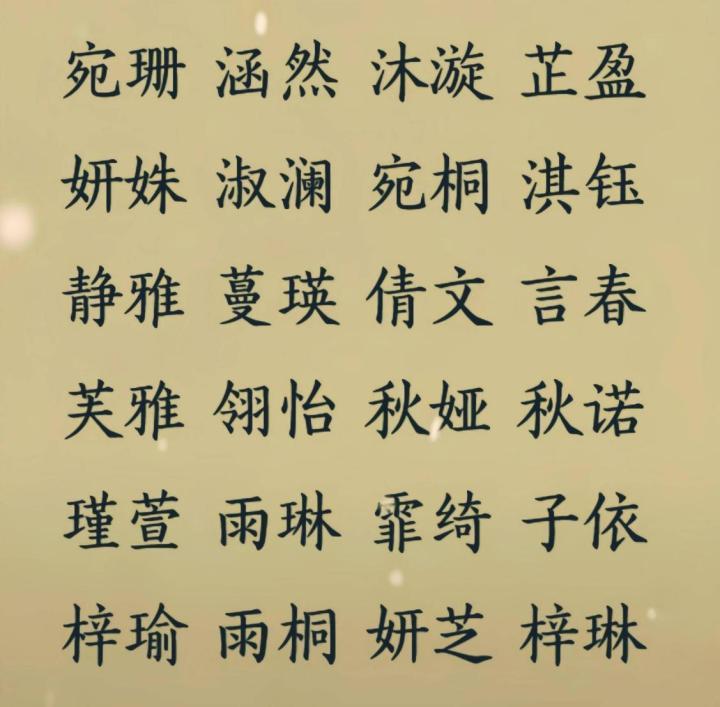 宛珊 涵然 沐漩 芷盈
妍姝 淑澜 宛桐 淇钰
静雅 蔓瑛 倩文 言春
芙雅 翎怡 秋娅 秋诺
瑾萱 雨琳 霏绮 子依
梓瑜 雨桐 妍芝 梓琳